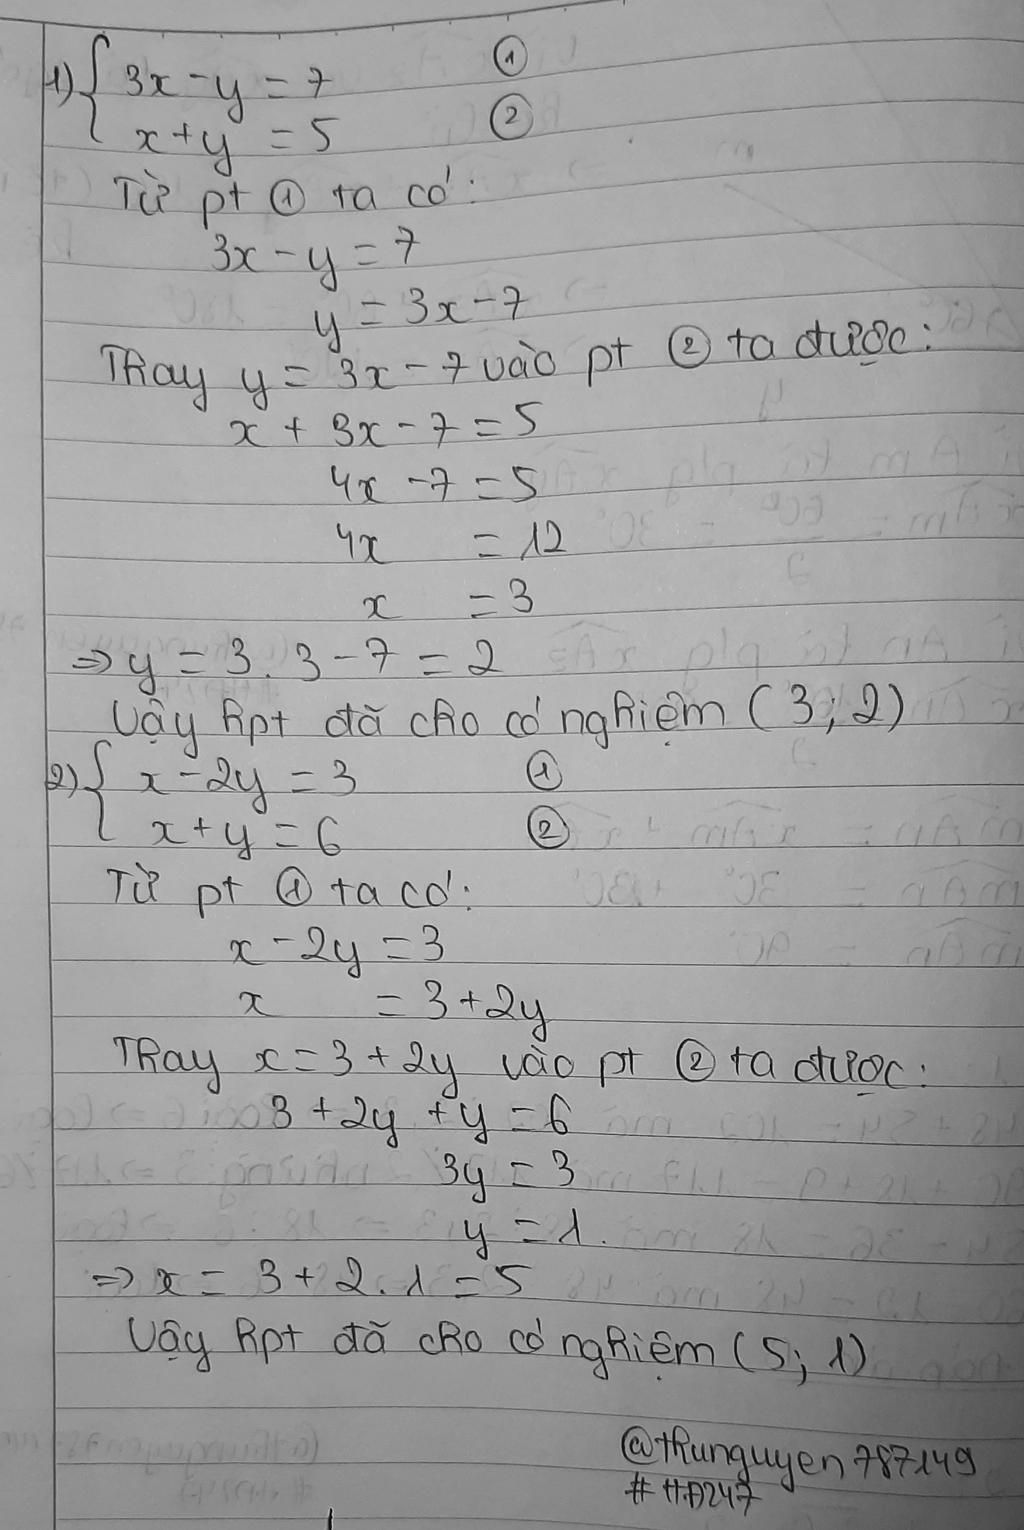 1) { 3x - y = 7 ①
x + y = 5 ②
Từ pt ① ta có:
3x - y = 7
y = 3x - 7
Thay y = 3x - 7 vào pt ② ta được:
x + 3x - 7 = 5
4x - 7 = 5
4x = 12
x = 3
⇒ y = 3. 3 - 7 = 2
Vậy hpt đã cho có nghiệm (3; 2)
2) { x - 2y = 3 ①
x + y = 6 ②
Từ pt ① ta có:
x - 2y = 3
x = 3 + 2y
Thay x = 3 + 2y vào pt ② ta được:
3 + 2y + y = 6
3y = 3
y = 1.
⇒ x = 3 + 2. 1 = 5
Vậy hpt đã cho có nghiệm (5; 1)
@thunguyen787149
# HĐ247